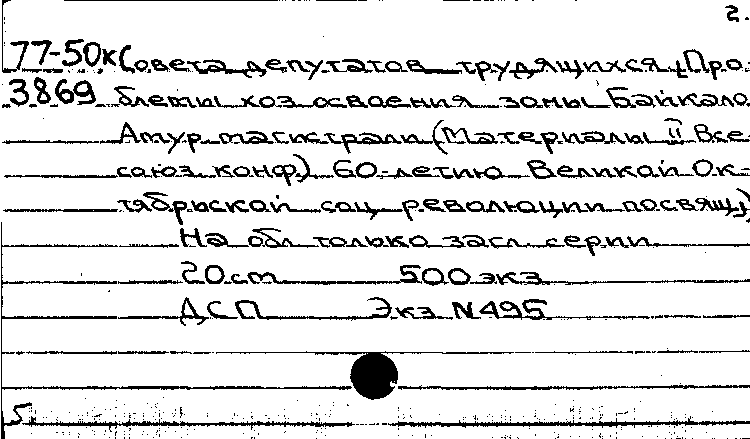 2.
77-50к Совета депутатов трудящихся, (Про-
3869 блемы хоз. освоения зоны Байкало-
Амур. магистрали (Материалы II Все-
союз. конф.) 60-летию Великой Ок-
тябрьской соц. революции посвящ.)
На обл. только загл. серии.
20 cm 500 экз
ДСП Экз N495
5.